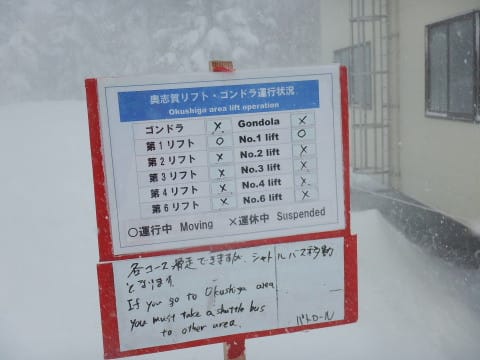 奥志賀リフト・ゴンドラ運行状況
Okushiga area lift operation
ゴンドラ × Gondola ×
第1リフト ○ No.1 lift ○
第2リフト × No.2 lift ×
第3リフト × No.3 lift ×
第4リフト × No.4 lift ×
第6リフト × No.6 lift ×
○運行中 Moving ×運休中 Suspended
各コース滑走できますが、シャトルバス移動
となります
If you go to Okushiga area
you must take a shuttle bus
to other area.
パトロール